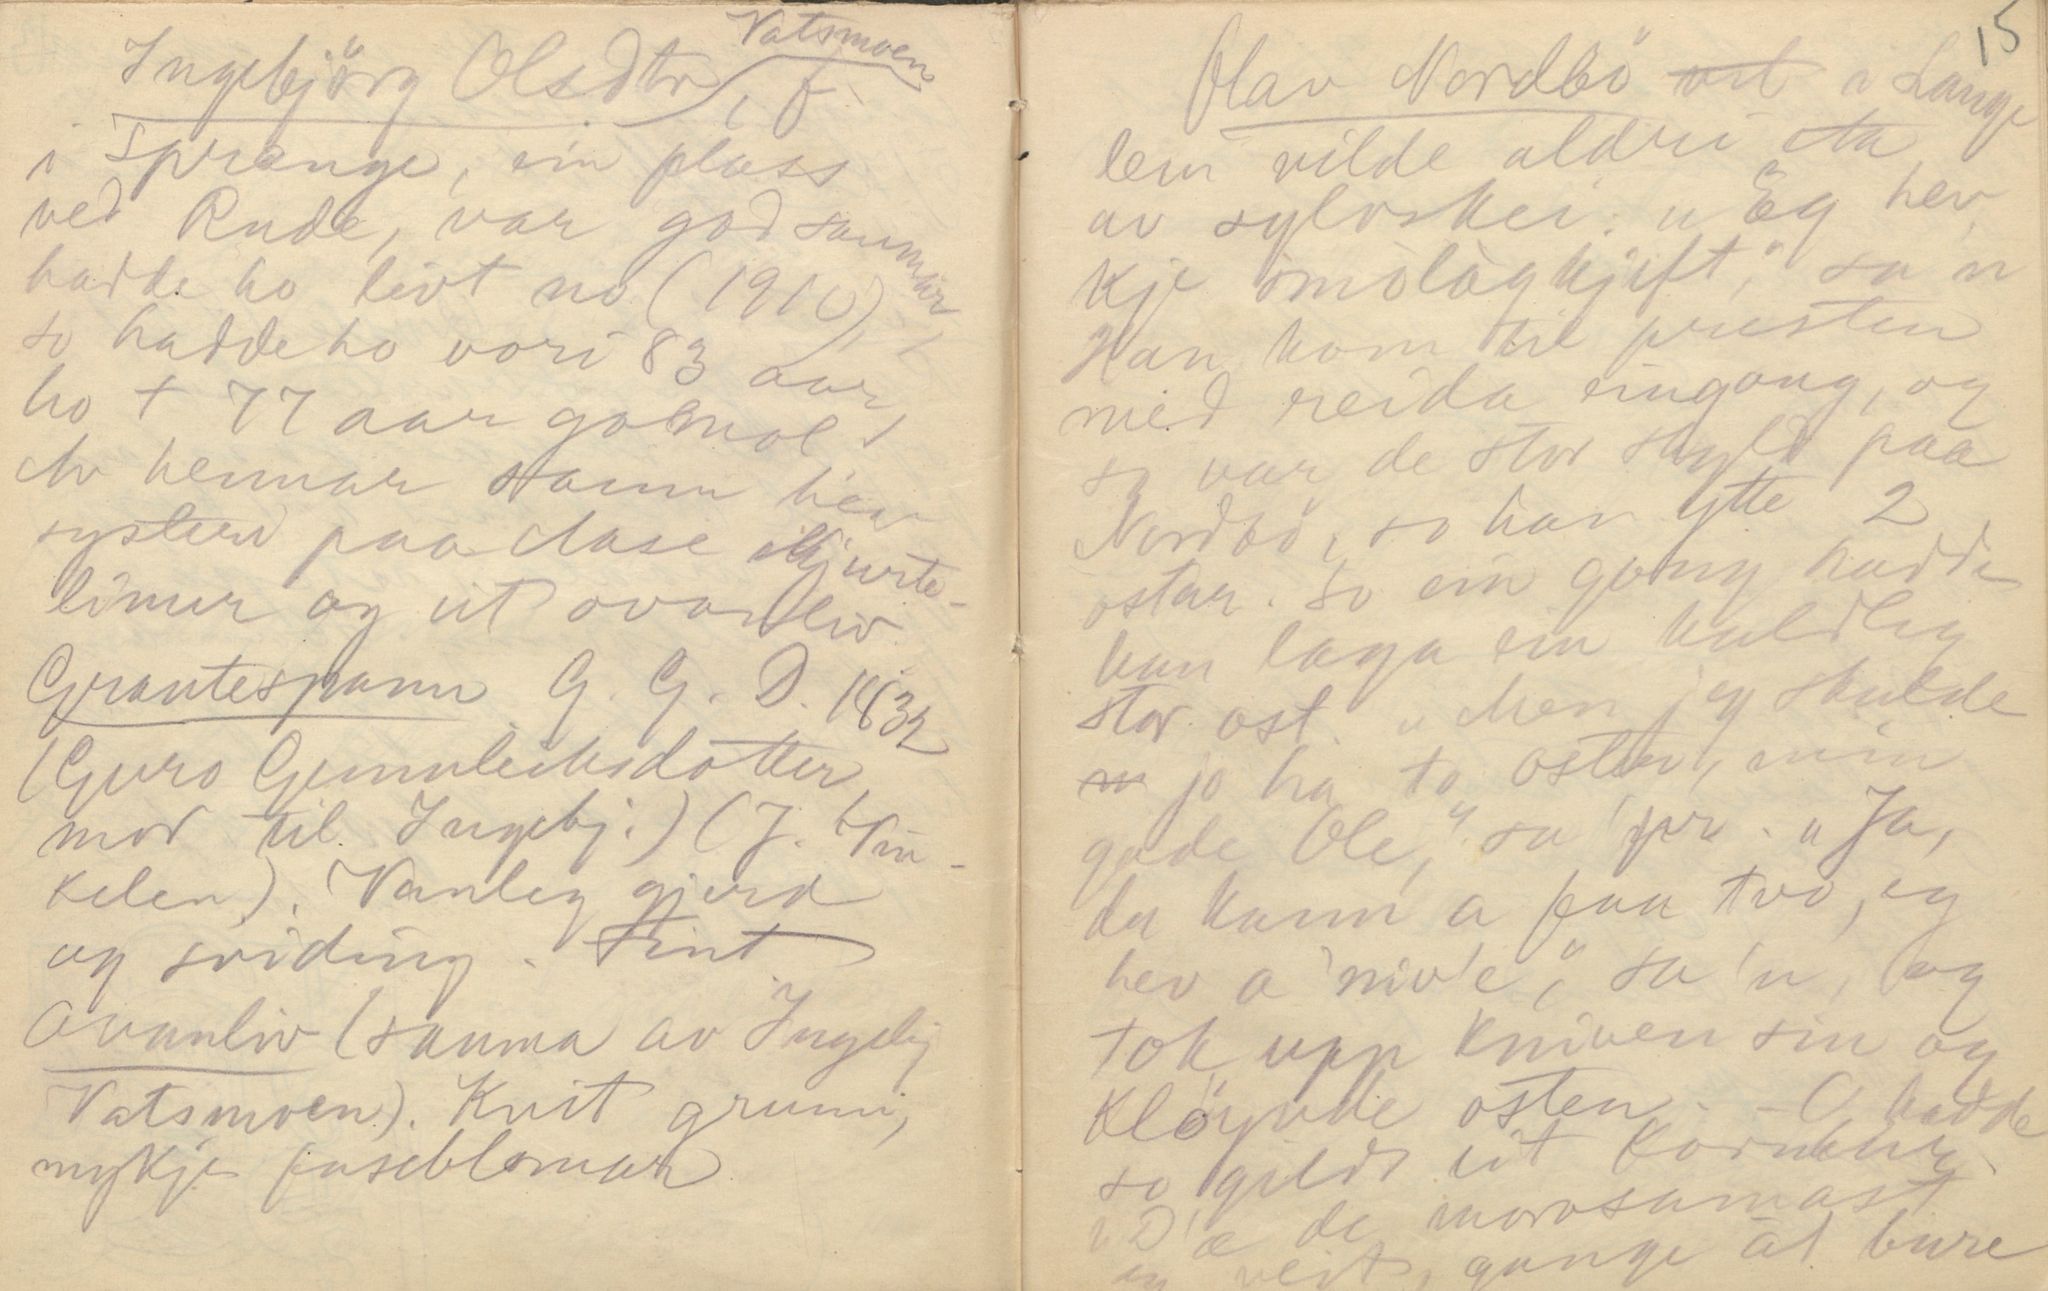 Vatsmoen
Ingebjörg Olsdtr, f.
i Sprange, ein plass
ved Rude, var god saumar,
hadde ho livt no (1910)
so hadde ho vori 83 aar,
ho † 77 aar gomol.
Av hennar saum hev
systeri paa Aase skjurte-
linur og eit ovanliv.
Grautespann G. G. D. 1832
(Guro Gunnleiksdotter
mor til Ingebj.) (J. Vin-
kelen). Vanleg gjerd
og sviding. Fint
Ovanliv (sauma av Ingebj
Vatsmoen). Kvit grunn,
mykje paseblomar
15
Olav Nordbö vil i Lange
lein vilde aldri eta
av sylvskei. "Eg hev
kje smölögkjeft," sa 'n
Han kom til presten
med reida eingong, og
so var de stor skyld paa
Nordbö, so han ytte 2
ostar. So ein gong hadde
han laga ein huldlig
stor ost. "Men jeg skulde
jo ha to oster, min
gode Ole," sa 'pr. "Ja,
du kann a faa tvo, eg
hev a 'niv'e," sa 'n, og
tok upp kniven sin og
klöyvde osten. - O hadde
so gildt eit kornbur.
"D' æ de morosamast
eg veit, gange åt bure